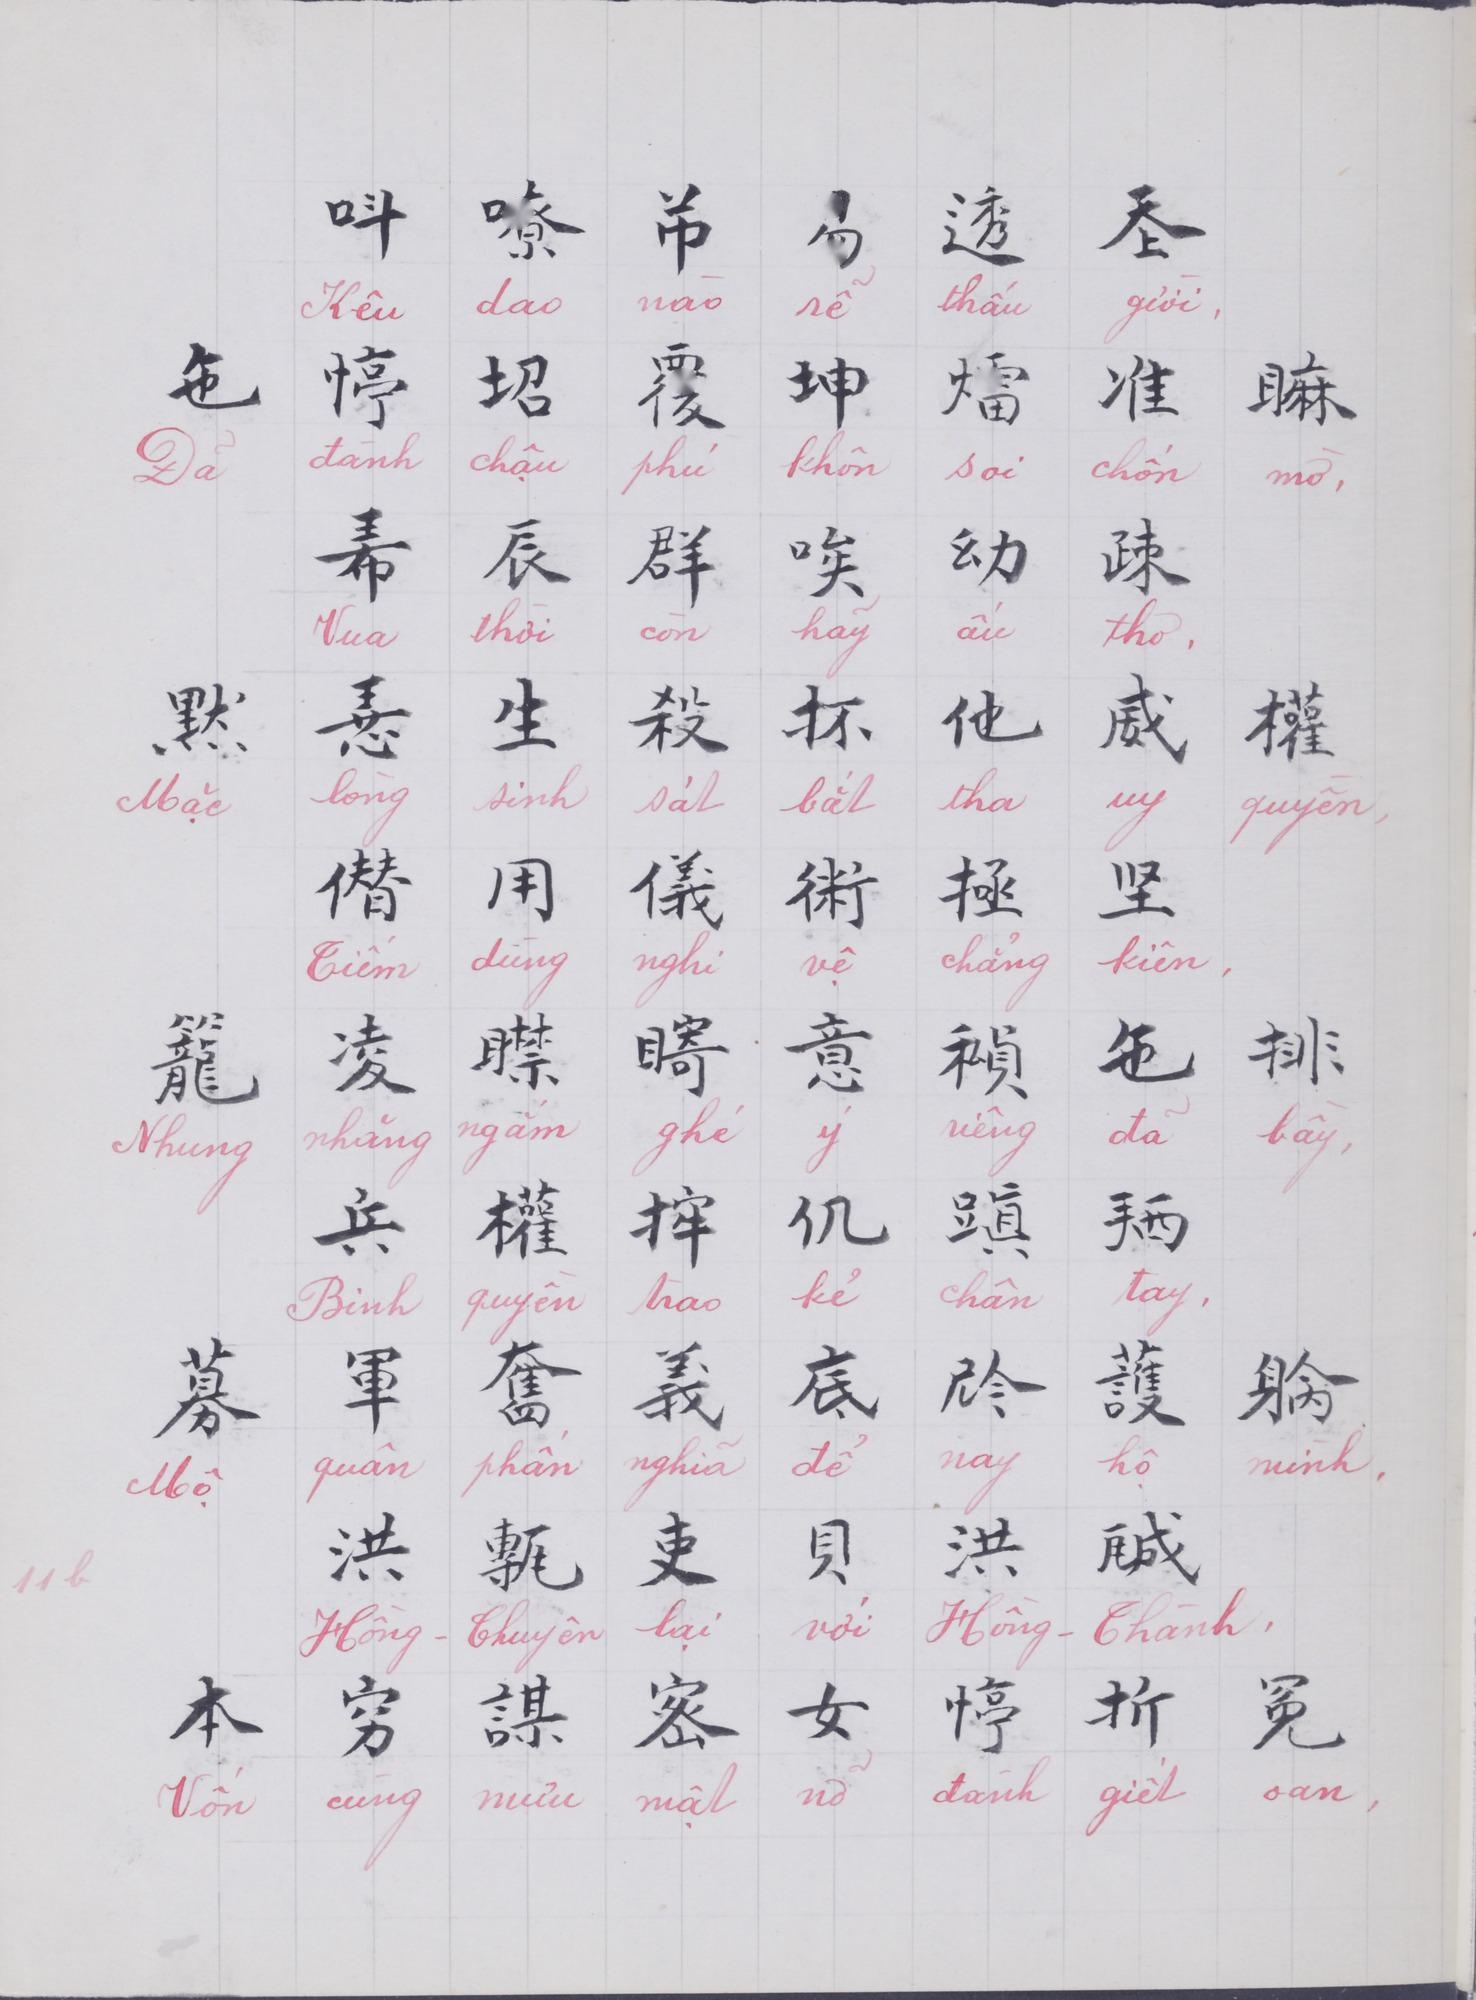 呌嘹芇易透𡗶
Kêu dao nào rễ thấu giời,
㐌𢠥㘳覆坤𤐝准𥊚
Đã đành chậu phú khôn soi chốn mờ,
𢂜辰群唉幼疎
Vua thời còn hãy ấu thơ,
默𢚸生殺抔他威權
Mặc lòng sinh sát bắt tha uy quyền,
僭用儀術拯坚
Tiếm dùng nghi vệ chẳng kiên,
籠凌𥋴䁶意禎㐌排
Nhung nhăng ngắm ghé ý riêng đã bầy,
兵權㨋仉蹎𢬣
Binh quyền trao kẻ chân tay,
募軍奮義底㕥護𨉟
Mộ quân phấn nghĩa để nay hộ mình,
洪甎吏貝洪䛐
Hồng-Chuyên lại với Hồng-Thành,
11b
本穷謀密女𢠥折冤
Vốn cùng mưu mật nỡ đành giết oan,